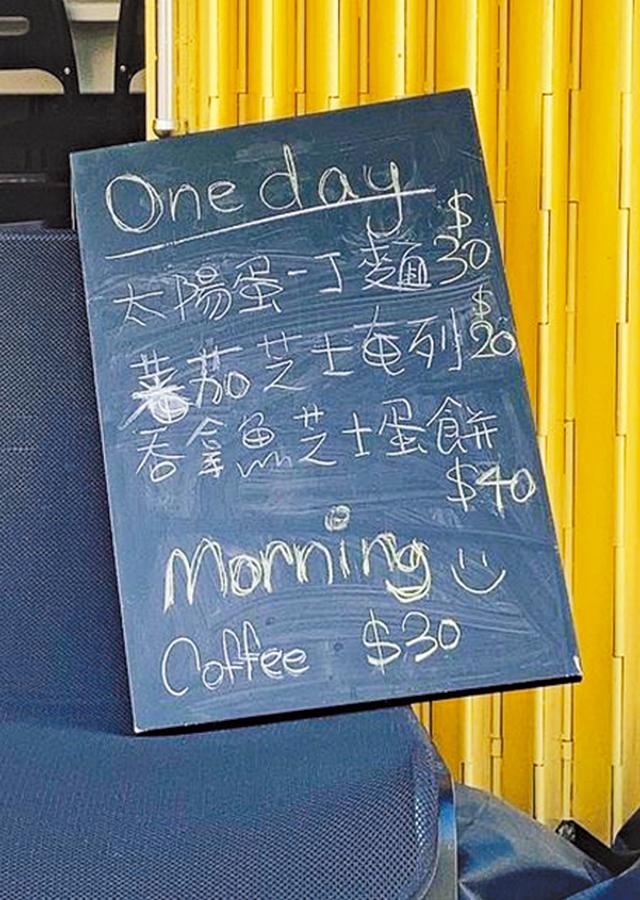 One day
太陽蛋一丁麵 $30
蕃茄芝士奄列 $20
吞拿魚芝士蛋餅
$40
Morning
Coffee $30